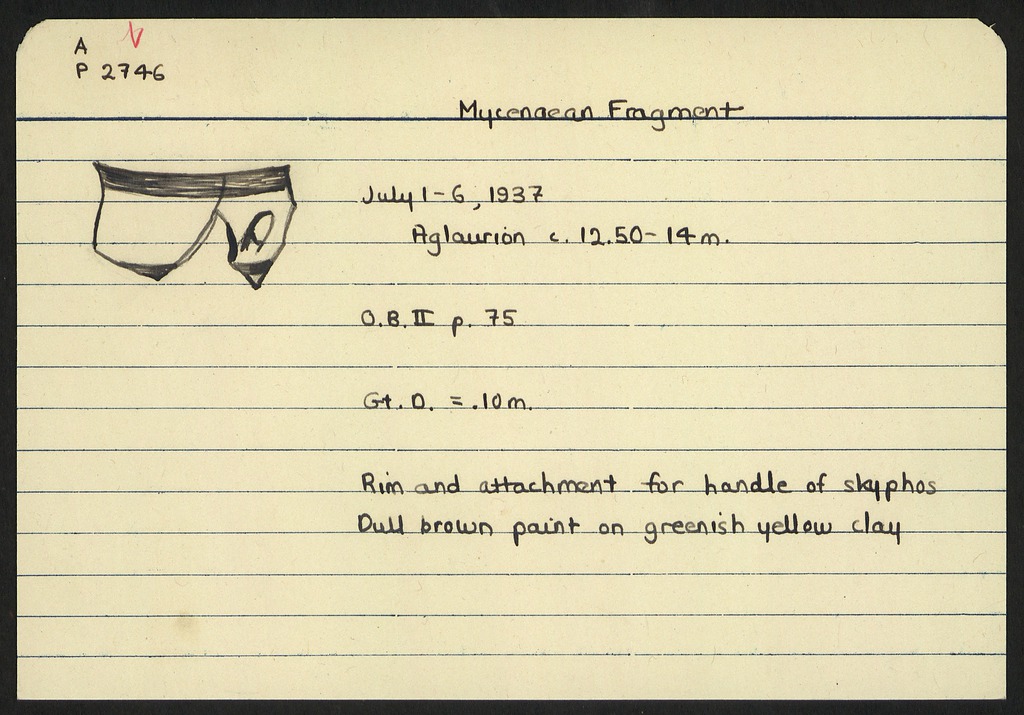 A
P 2746
Mycenaean Fragment
July 1-6, 1937
Aglaurion c. 12.50-14m.
O.B. II p. 75
Gt. D. = .10m.
Rim and attachment for handle of skyphos
Dull brown paint on greenish yellow clay